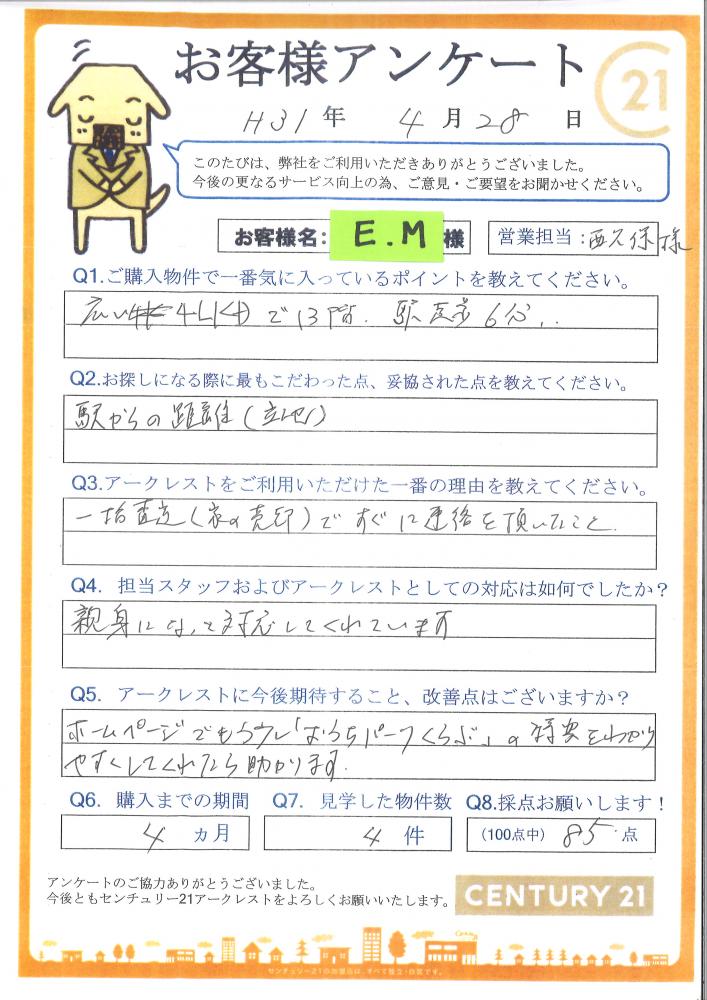 お客様アンケート
21
H31年 4月28日
このたびは、弊社をご利用いただきありがとうございました。
今後の更なるサービス向上の為、ご意見・ご要望をお聞かせください。
お客様名: E.M 様
営業担当:西久保様
Q1.ご購入物件で一番気に入っているポイントを教えてください。
広い 4LKDで13階. 駅 6分
Q2.お探しになる際に最もこだわった点、妥協された点を教えてください。
駅からの距離(立地)
Q3.アークレストをご利用いただけた一番の理由を教えてください。
一括査定(家の売却)ですぐに連絡を頂いたこと.
Q4. 担当スタッフおよびアークレストとしての対応は如何でしたか?
親身になって対応してくれています
Q5. アークレストに今後期待すること、改善点はございますか?
ホームページでもう少し「おうちパークくらぶ」の特典をわかり
やすくしてくれたら助かります.
Q6. 購入までの期間
4 ヵ月
Q7. 見学した物件数
4 件
Q8.採点お願いします!
(100点中) 85 点
アンケートのご協力ありがとうございました。
今後ともセンチュリー21アークレストをよろしくお願いいたします。
CENTURY 21
センチュリー21のお店は、すべて独立・自営です。